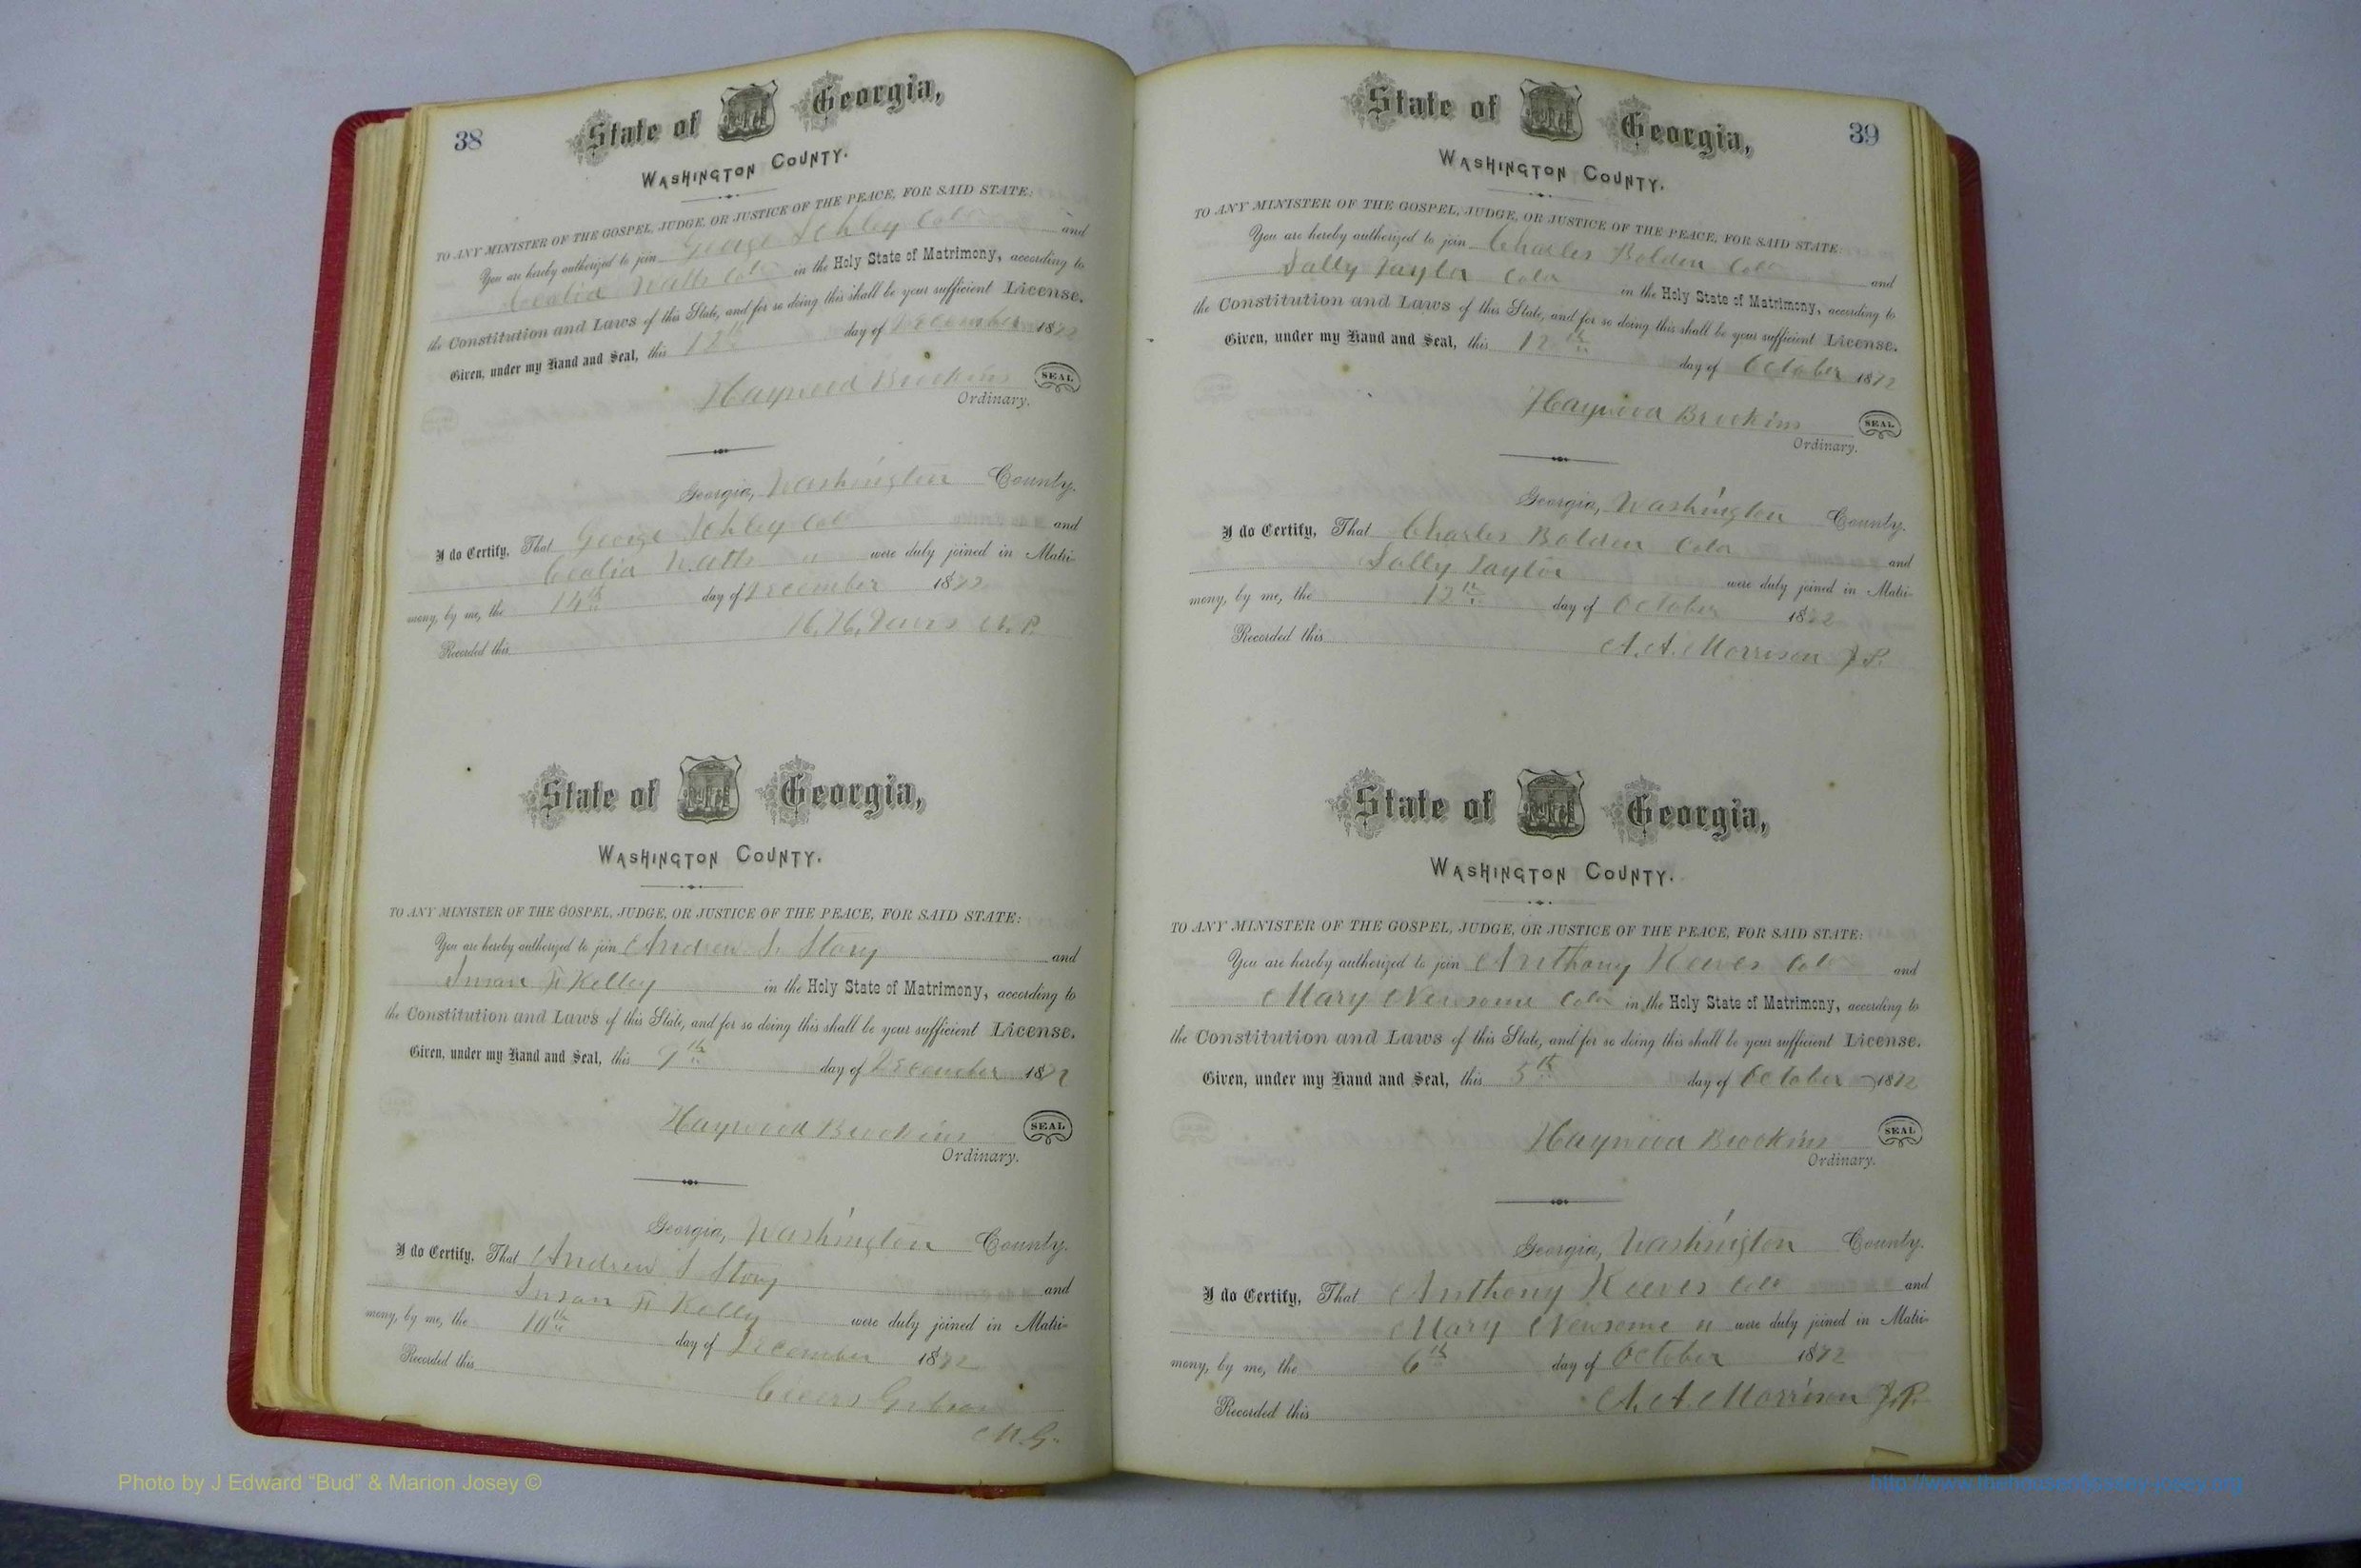 38
State of Georgia,
WASHINGTON COUNTY.
TO ANY MINISTER OF THE GOSPEL, JUDGE, OR JUSTICE OF THE PEACE, FOR SAID STATE:
You are hereby authorized to join George Ichley Cold and
Cealia Watts Cold in the Holy State of Matrimony, according to
the Constitution and Laws of this State, and for so doing this shall be your sufficient License.
Given, under my Hand and Seal, this 12th day of December 1872
Haywood Brookins SEAL
Ordinary.
Georgia, Washington County.
I do Certify, That George Ichley Col and
Cealia Watts " were duly joined in Matri-
mony, by me, the 14th day of December 1872
Recorded this
State of Georgia,
WASHINGTON COUNTY.
TO ANY MINISTER OF THE GOSPEL, JUDGE, OR JUSTICE OF THE PEACE, FOR SAID STATE:
You are hereby authorized to join Andrew S. Story and
Susan F Kelley in the Holy State of Matrimony, according to
the Constitution and Laws of this State, and for so doing this shall be your sufficient License.
Given, under my Hand and Seal, this 9th day of December 1872
Haywood Brookins SEAL
Ordinary.
Georgia, Washington County.
I do Certify, That Andrew S Story and
Susan F Kelly were duly joined in Matri-
mony, by me, the 10th day of December 1872
Recorded this
M.G.
39
State of Georgia,
WASHINGTON COUNTY.
TO ANY MINISTER OF THE GOSPEL, JUDGE, OR JUSTICE OF THE PEACE, FOR SAID STATE:
You are hereby authorized to join Charles Bolden Cold and
Sally Taylor Cold in the Holy State of Matrimony, according to
the Constitution and Laws of this State, and for so doing this shall be your sufficient License.
Given, under my Hand and Seal, this 12th day of October 1872
Haywood Brookins SEAL
Ordinary.
Georgia, Washington County.
I do Certify, That Charles Bolden Cold and
Sally Taylor were duly joined in Matri-
mony, by me, the 12th day of October 1872
Recorded this A. A. Morrison J.P.
State of Georgia,
WASHINGTON COUNTY.
TO ANY MINISTER OF THE GOSPEL, JUDGE, OR JUSTICE OF THE PEACE, FOR SAID STATE:
You are hereby authorized to join Anthony Reeves Cold and
Mary Newsome Cold in the Holy State of Matrimony, according to
the Constitution and Laws of this State, and for so doing this shall be your sufficient License.
Given, under my Hand and Seal, this 5th day of October 1872
Haywood Brookins SEAL
Ordinary.
Georgia, Washington County.
I do Certify, That Anthony Reeves Cold and
Mary Newsome " were duly joined in Matri-
mony, by me, the 6th day of October 1872
Recorded this A. A. Morrison J.P.
Photo by J Edward “Bud” & Marion Josey ©